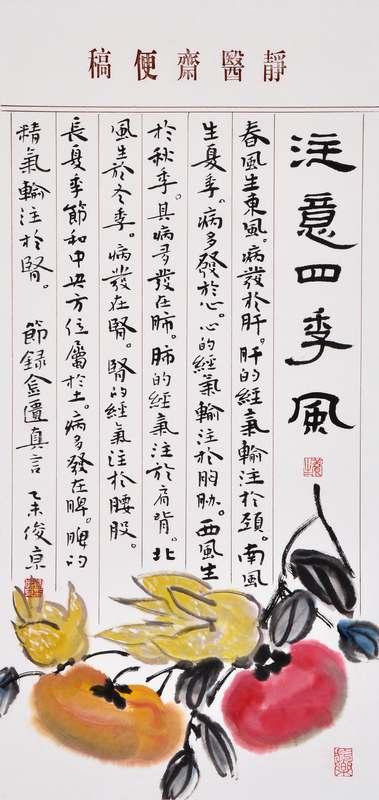 靜醫齋便稿
注意四季風
春風生東風。病發於肝。肝的經氣輸注於頸。南風
生夏季。病多發於心。心的經氣輸注於胸胁。西風生
於秋季。其病多發在肺。肺的經氣注於肩背。北
風生於冬季。病發在腎。腎的經氣注於腰股。
長夏季節和中央方位屬於土。病多發在脾。脾的
精氣輪注於腎。 節録金匱真言 乙未俊京